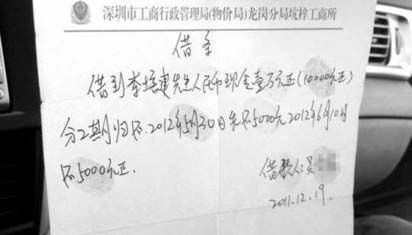 深圳市工商行政管理局(物价局)龙岗分局坑梓工商所
借条
借到李培建先生人民币现金壹万元正(10000元正)
分2期归还.2012年5月30日先还5000元2012年6月10日
还5000元正.
借款人:吴
2011.12.19.